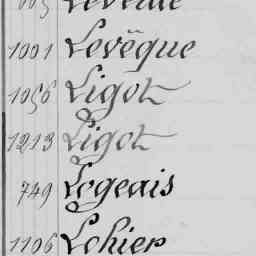 1001 Levêque
1056 Ligot
1213 Ligot
749 Logeais
1106 Lohier